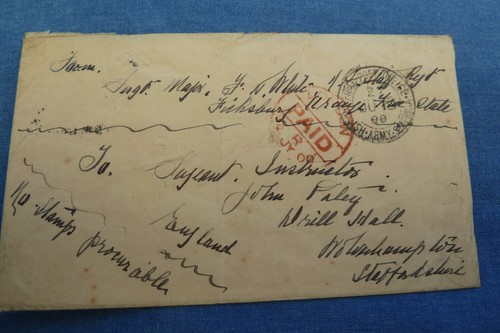 From.
Sergt Major. F. W. White
Ficksburg Orange Free State
To.
Sergeant. Instructor.
John Paley.
Drill Hall.
Wolverhampton
Staffordshire
England
No Stamps
procurable
PAID
00
ARMY
00